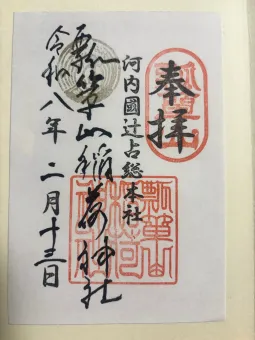 奉拝
河内國辻占総本社
瓢箪山稲荷神社
令和八年二月十三日
瓢箪山
瓢箪山稲荷神社